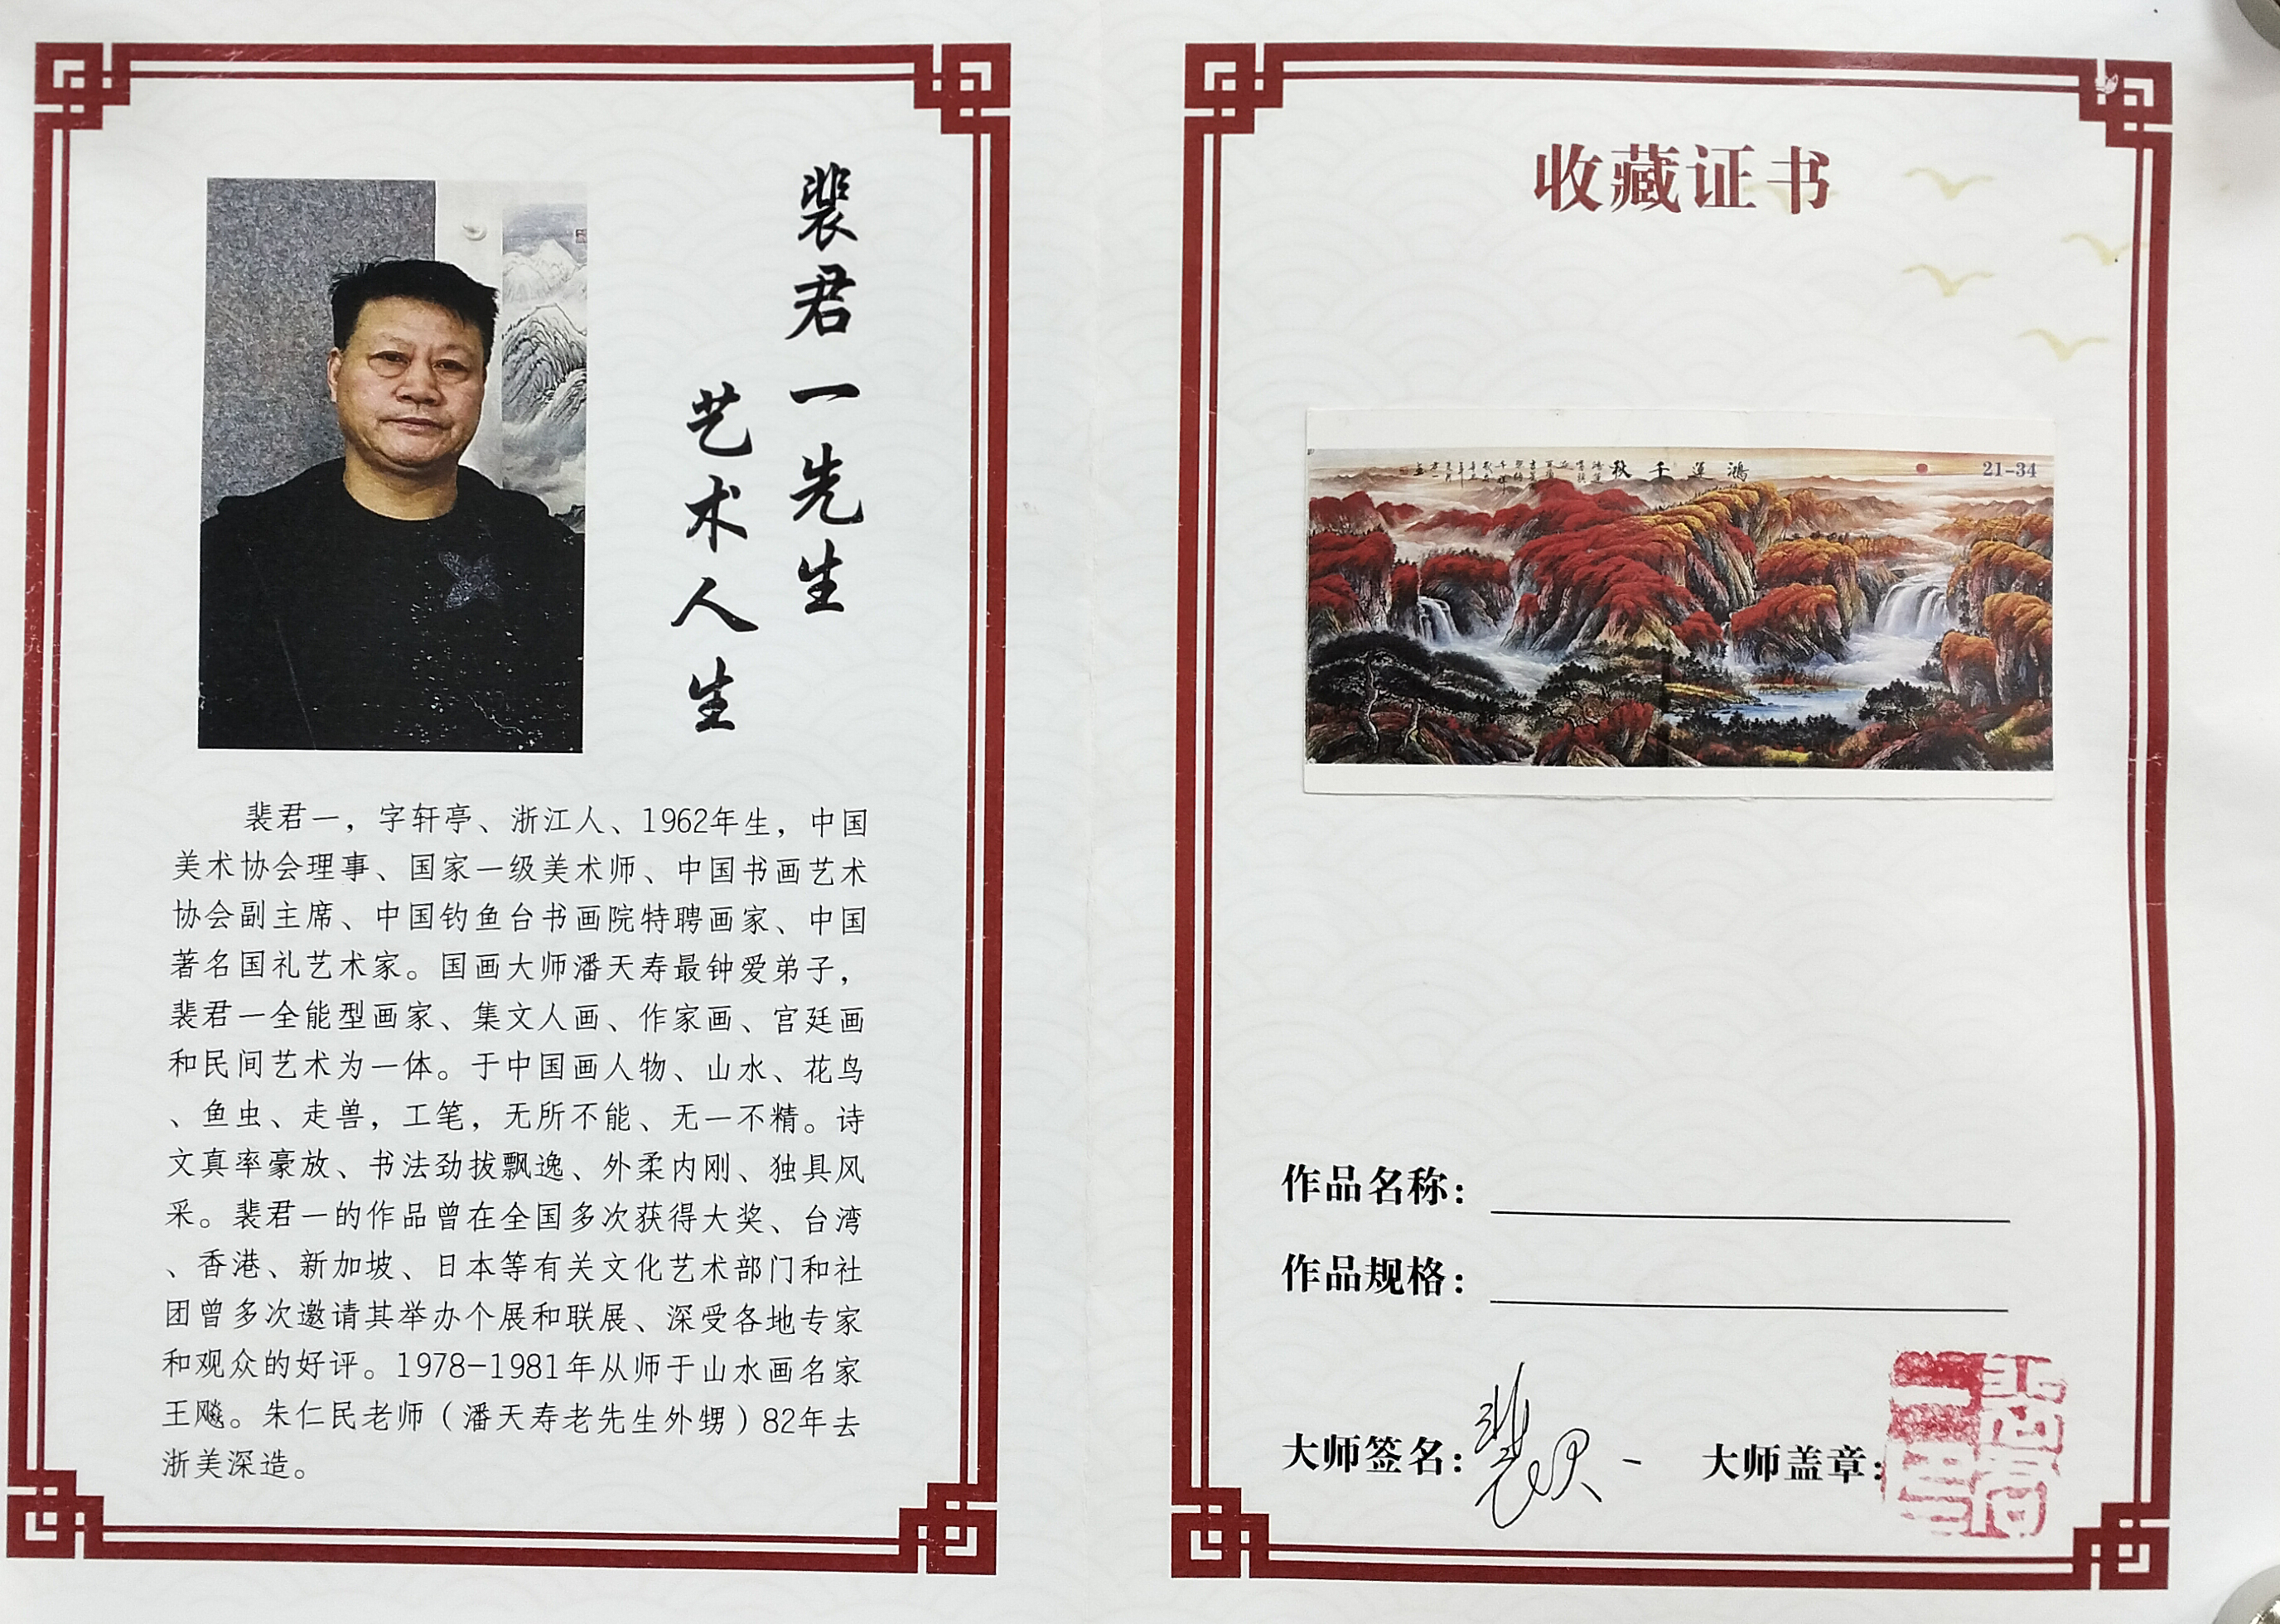 裴君一先生
艺术人生
裴君一，字轩亭、浙江人、1962年生，中国
美术协会理事、国家一级美术师、中国书画艺术
协会副主席、中国钓鱼台书画院特聘画家、中国
著名国礼艺术家。国画大师潘天寿最钟爱弟子，
裴君一全能型画家、集文人画、作家画、宫廷画
和民间艺术为一体。于中国画人物、山水、花鸟
、鱼虫、走兽，工笔，无所不能、无一不精。诗
文真率豪放、书法劲拔飘逸、外柔内刚、独具风
采。裴君一的作品曾在全国多次获得大奖、台湾
、香港、新加坡、日本等有关文化艺术部门和社
团曾多次邀请其举办个展和联展、深受各地专家
和观众的好评。1978-1981年从师于山水画名家
王飚。朱仁民老师（潘天寿老先生外甥）82年去
浙美深造。
收藏证书
鴻運千秋
21-34
作品名称：
作品规格：
大师签名：裴君一
大师盖章：
裴君一印